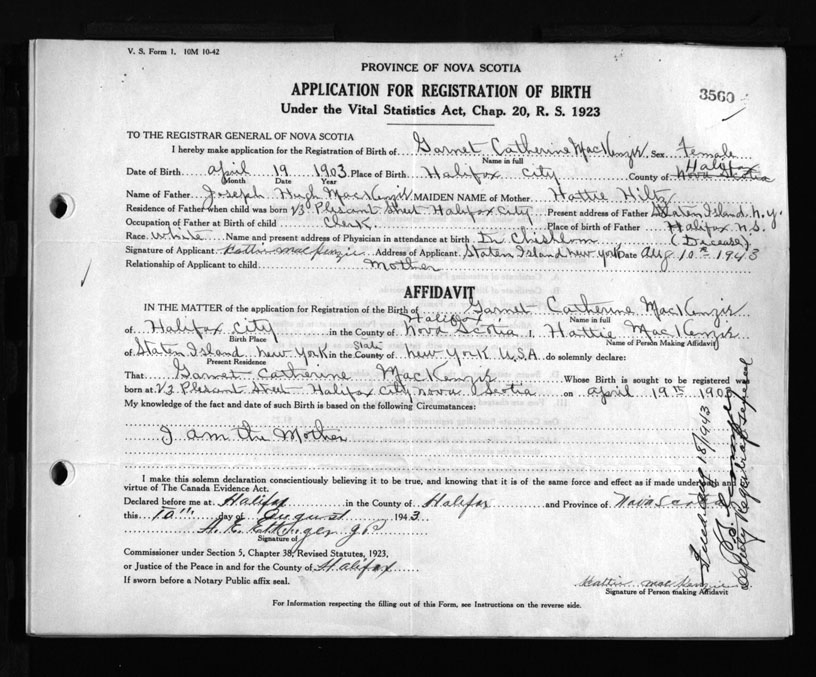 V. S. Form 1. 10M 10-42
PROVINCE OF NOVA SCOTIA
APPLICATION FOR REGISTRATION OF BIRTH
3560
Under the Vital Statistics Act, Chap. 20, R. S. 1923
TO THE REGISTRAR GENERAL OF NOVA SCOTIA
I hereby make application for the Registration of Birth of Garnet Catherine MacKenzie Sex Female
Name in full
Halifax
Date of Birth April 19 1903 Place of Birth Halifax City County of Nova Scotia
Month Date Year
Name of Father Joseph Hugh MacKenzie MAIDEN NAME of Mother Hattie Hiltz
Residence of Father when child was born 73 Plesant Street Halifax City Present address of Father Staten Island N.Y.
Occupation of Father at Birth of child Clerk Place of birth of Father Halifax N.S.
Race White Name and present address of Physician in attendance at birth Dr Chisholm (Decease)
Signature of Applicant Hattie MacKenzie Address of Applicant Staten Island New York Date Aug 10th 1943
Relationship of Applicant to child Mother
AFFIDAVIT
IN THE MATTER of the application for Registration of the Birth of Garnet Catherine MacKenzie
Name in full
Halifax
of Halifax City in the County of Nova Scotia I, Hattie MacKenzie
Birth Place Name of Person Making Affidavit
State
of Staten Island New York in the County of New York U.S.A. do solemnly declare:
Present Residence
That Garnet Catherine MacKenzie Whose Birth is sought to be registered was
born at 73 Plesant Street Halifax City Nova Scotia on April 19th 1903
My knowledge of the fact and date of such Birth is based on the following Circumstances:
I am the Mother
I make this solemn declaration conscientiously believing it to be true, and knowing that it is of the same force and effect as if made under oath and
virtue of The Canada Evidence Act.
Declared before me at Halifax in the County of Halifax and Province of Nova Scotia
this 10th day of August 1943
Signature of
Commissioner under Section 5, Chapter 38, Revised Statutes, 1923,
or Justice of the Peace in and for the County of Halifax
If sworn before a Notary Public affix seal.
Hattie MacKenzie
Signature of Person making Affidavit
For Information respecting the filling out of this Form, see Instructions on the reverse side.
Aug 18/1943
Deputy Registrar General